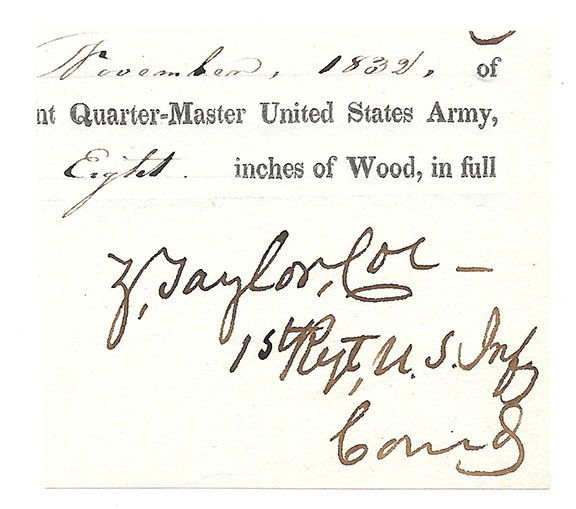 November, 1832, of
nt Quarter-Master United States Army,
Eight. inches of Wood, in full
Z, Taylor, Col —
1st Regt, U. S. Inf,
Comd